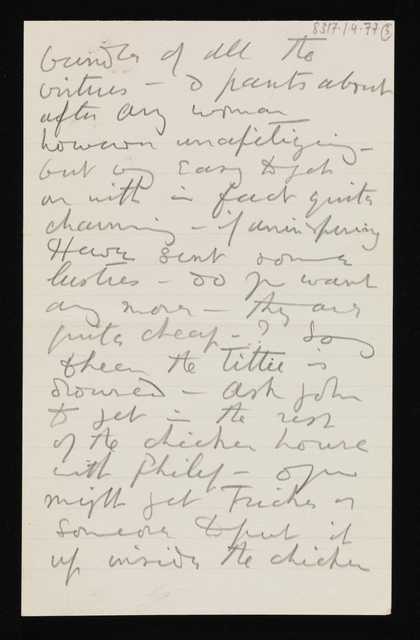 8317.1.4.77 (3
bundle of all the
virtues – & pants about
after any woman
however unapetizing –
but very Easy to get
on with in fact quite
charming – if uninspiring
Have sent some
lustres – do you want
any more – they are
quite cheap – ? So
the Tittie is
drowned – Ask John
to get in the rest
of the chicken house
with Philip – or you
might get Fricker or
someone to put it
up inside the chicken